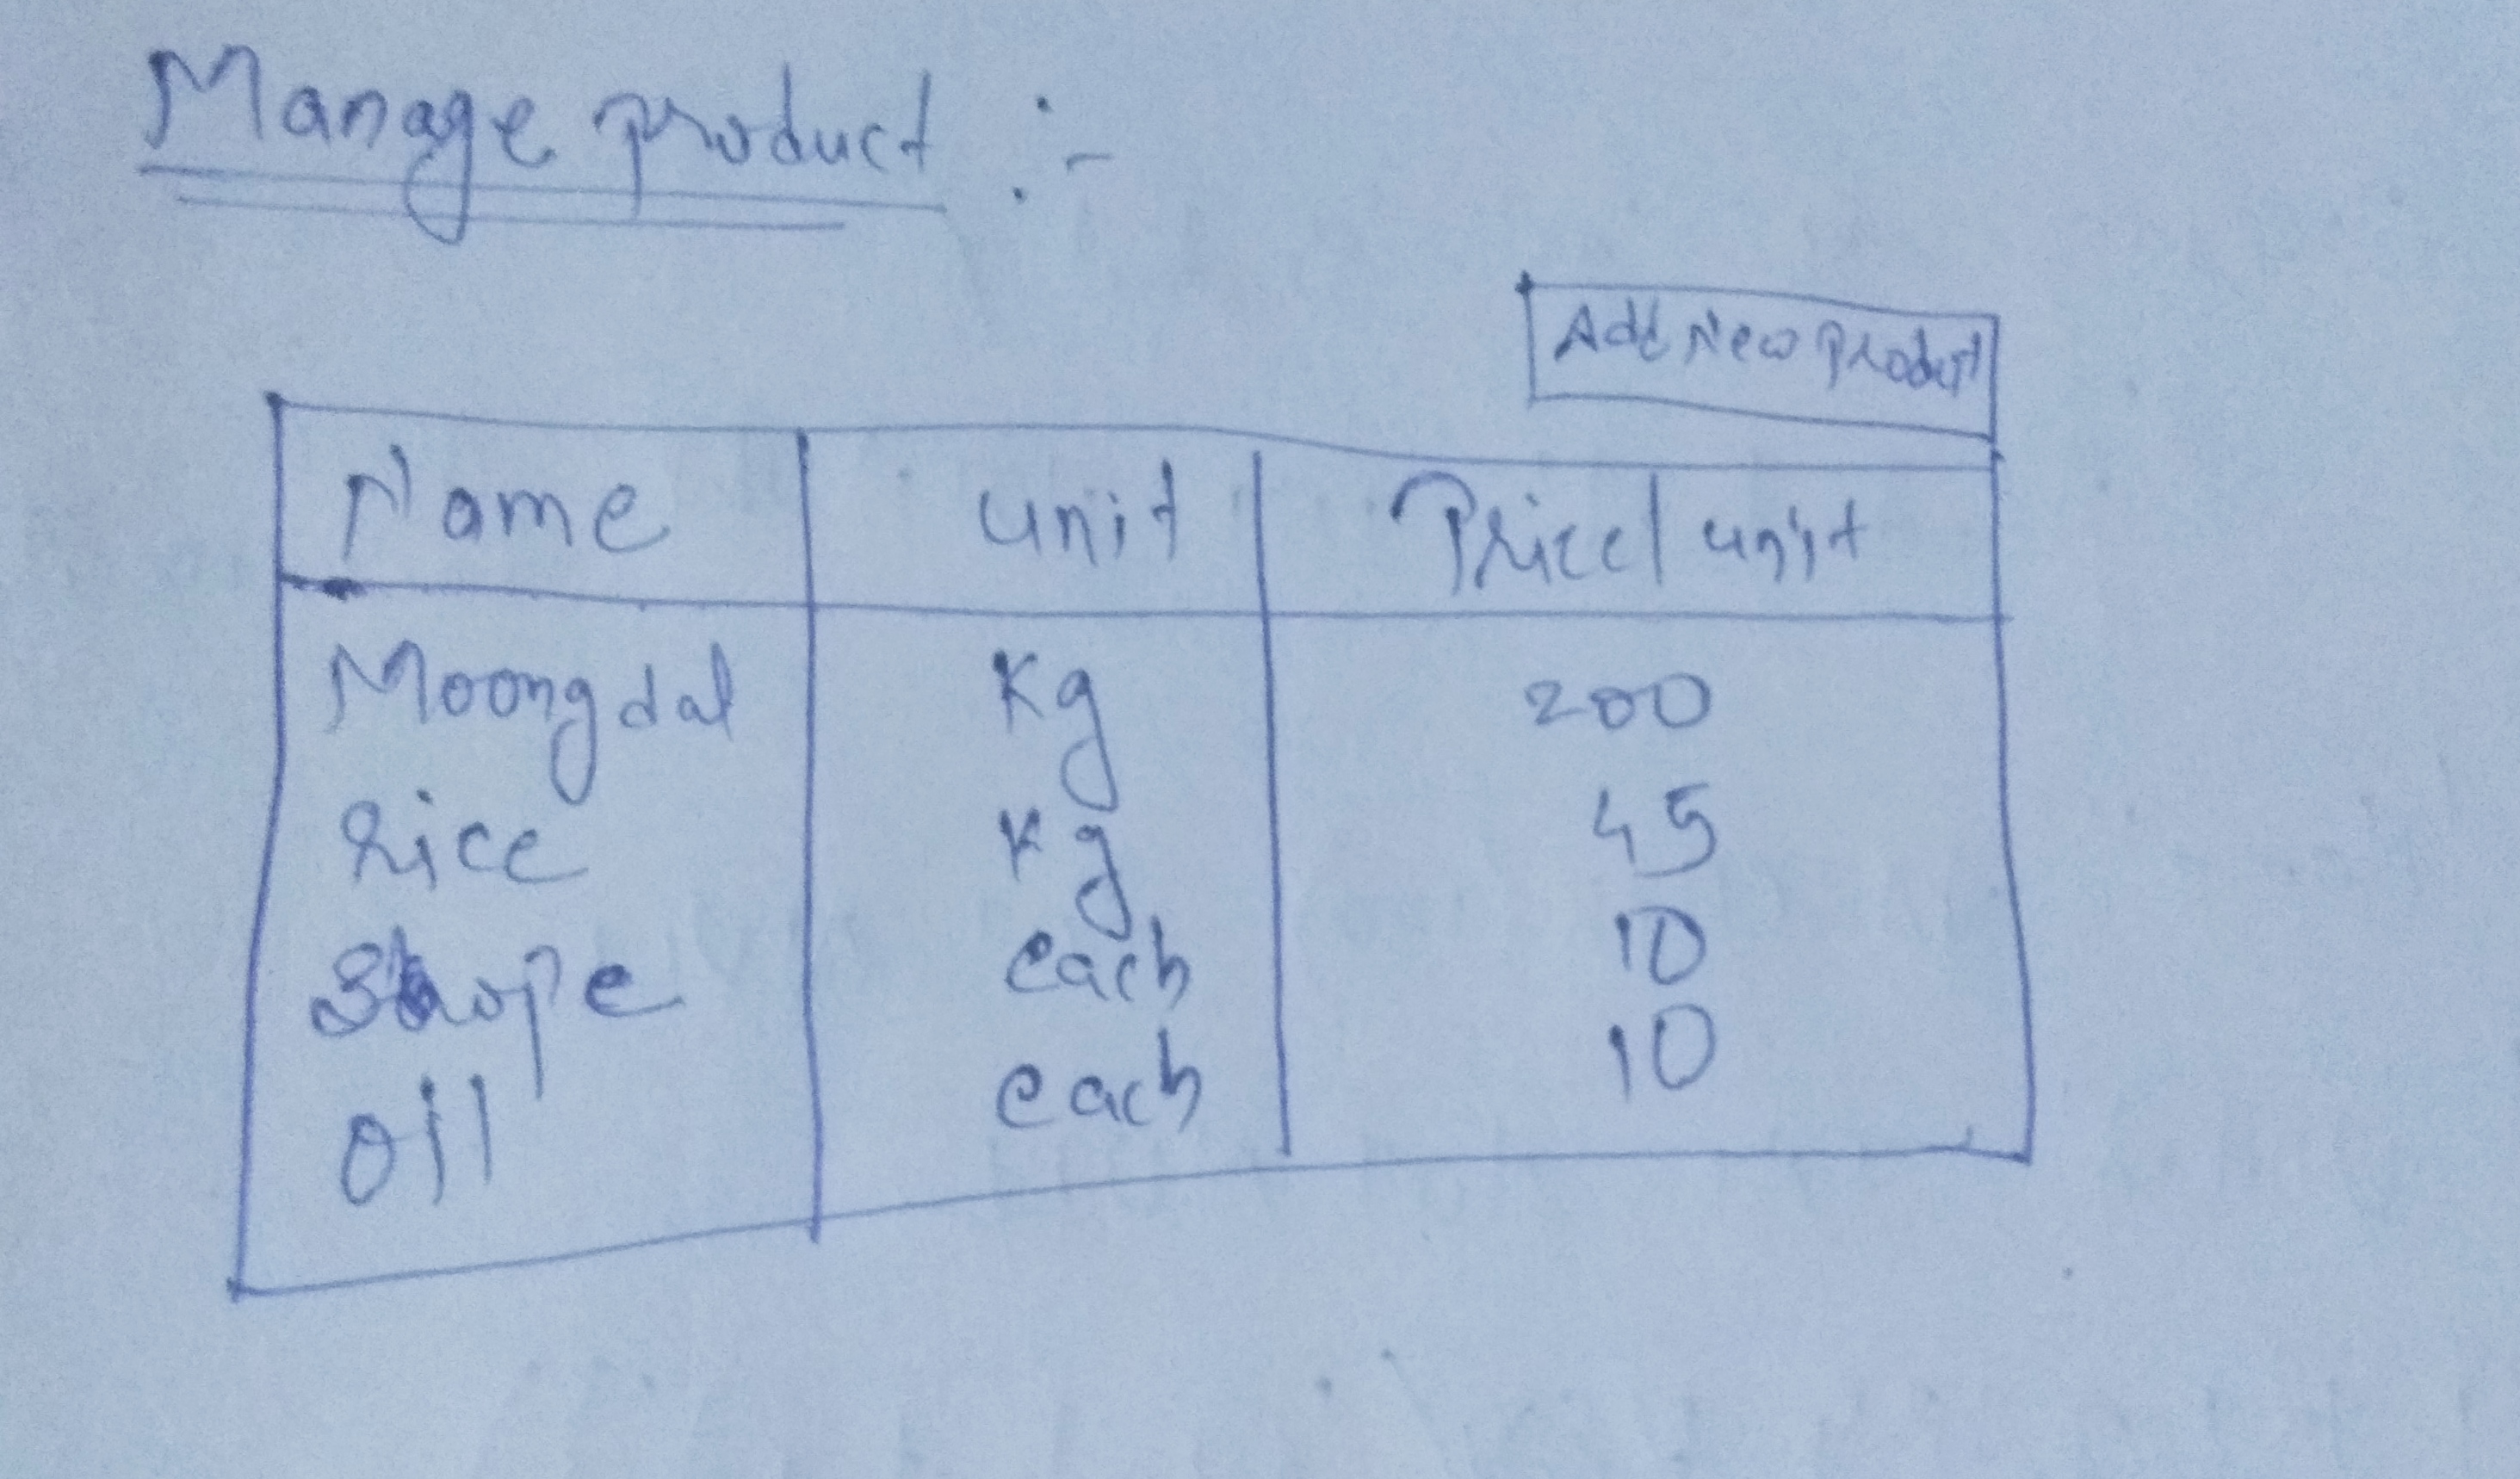 Manage product :-
Add New Product
Name unit Price/unit
Moong dal Kg 200
Rice Kg 45
each 10
Oil each 10